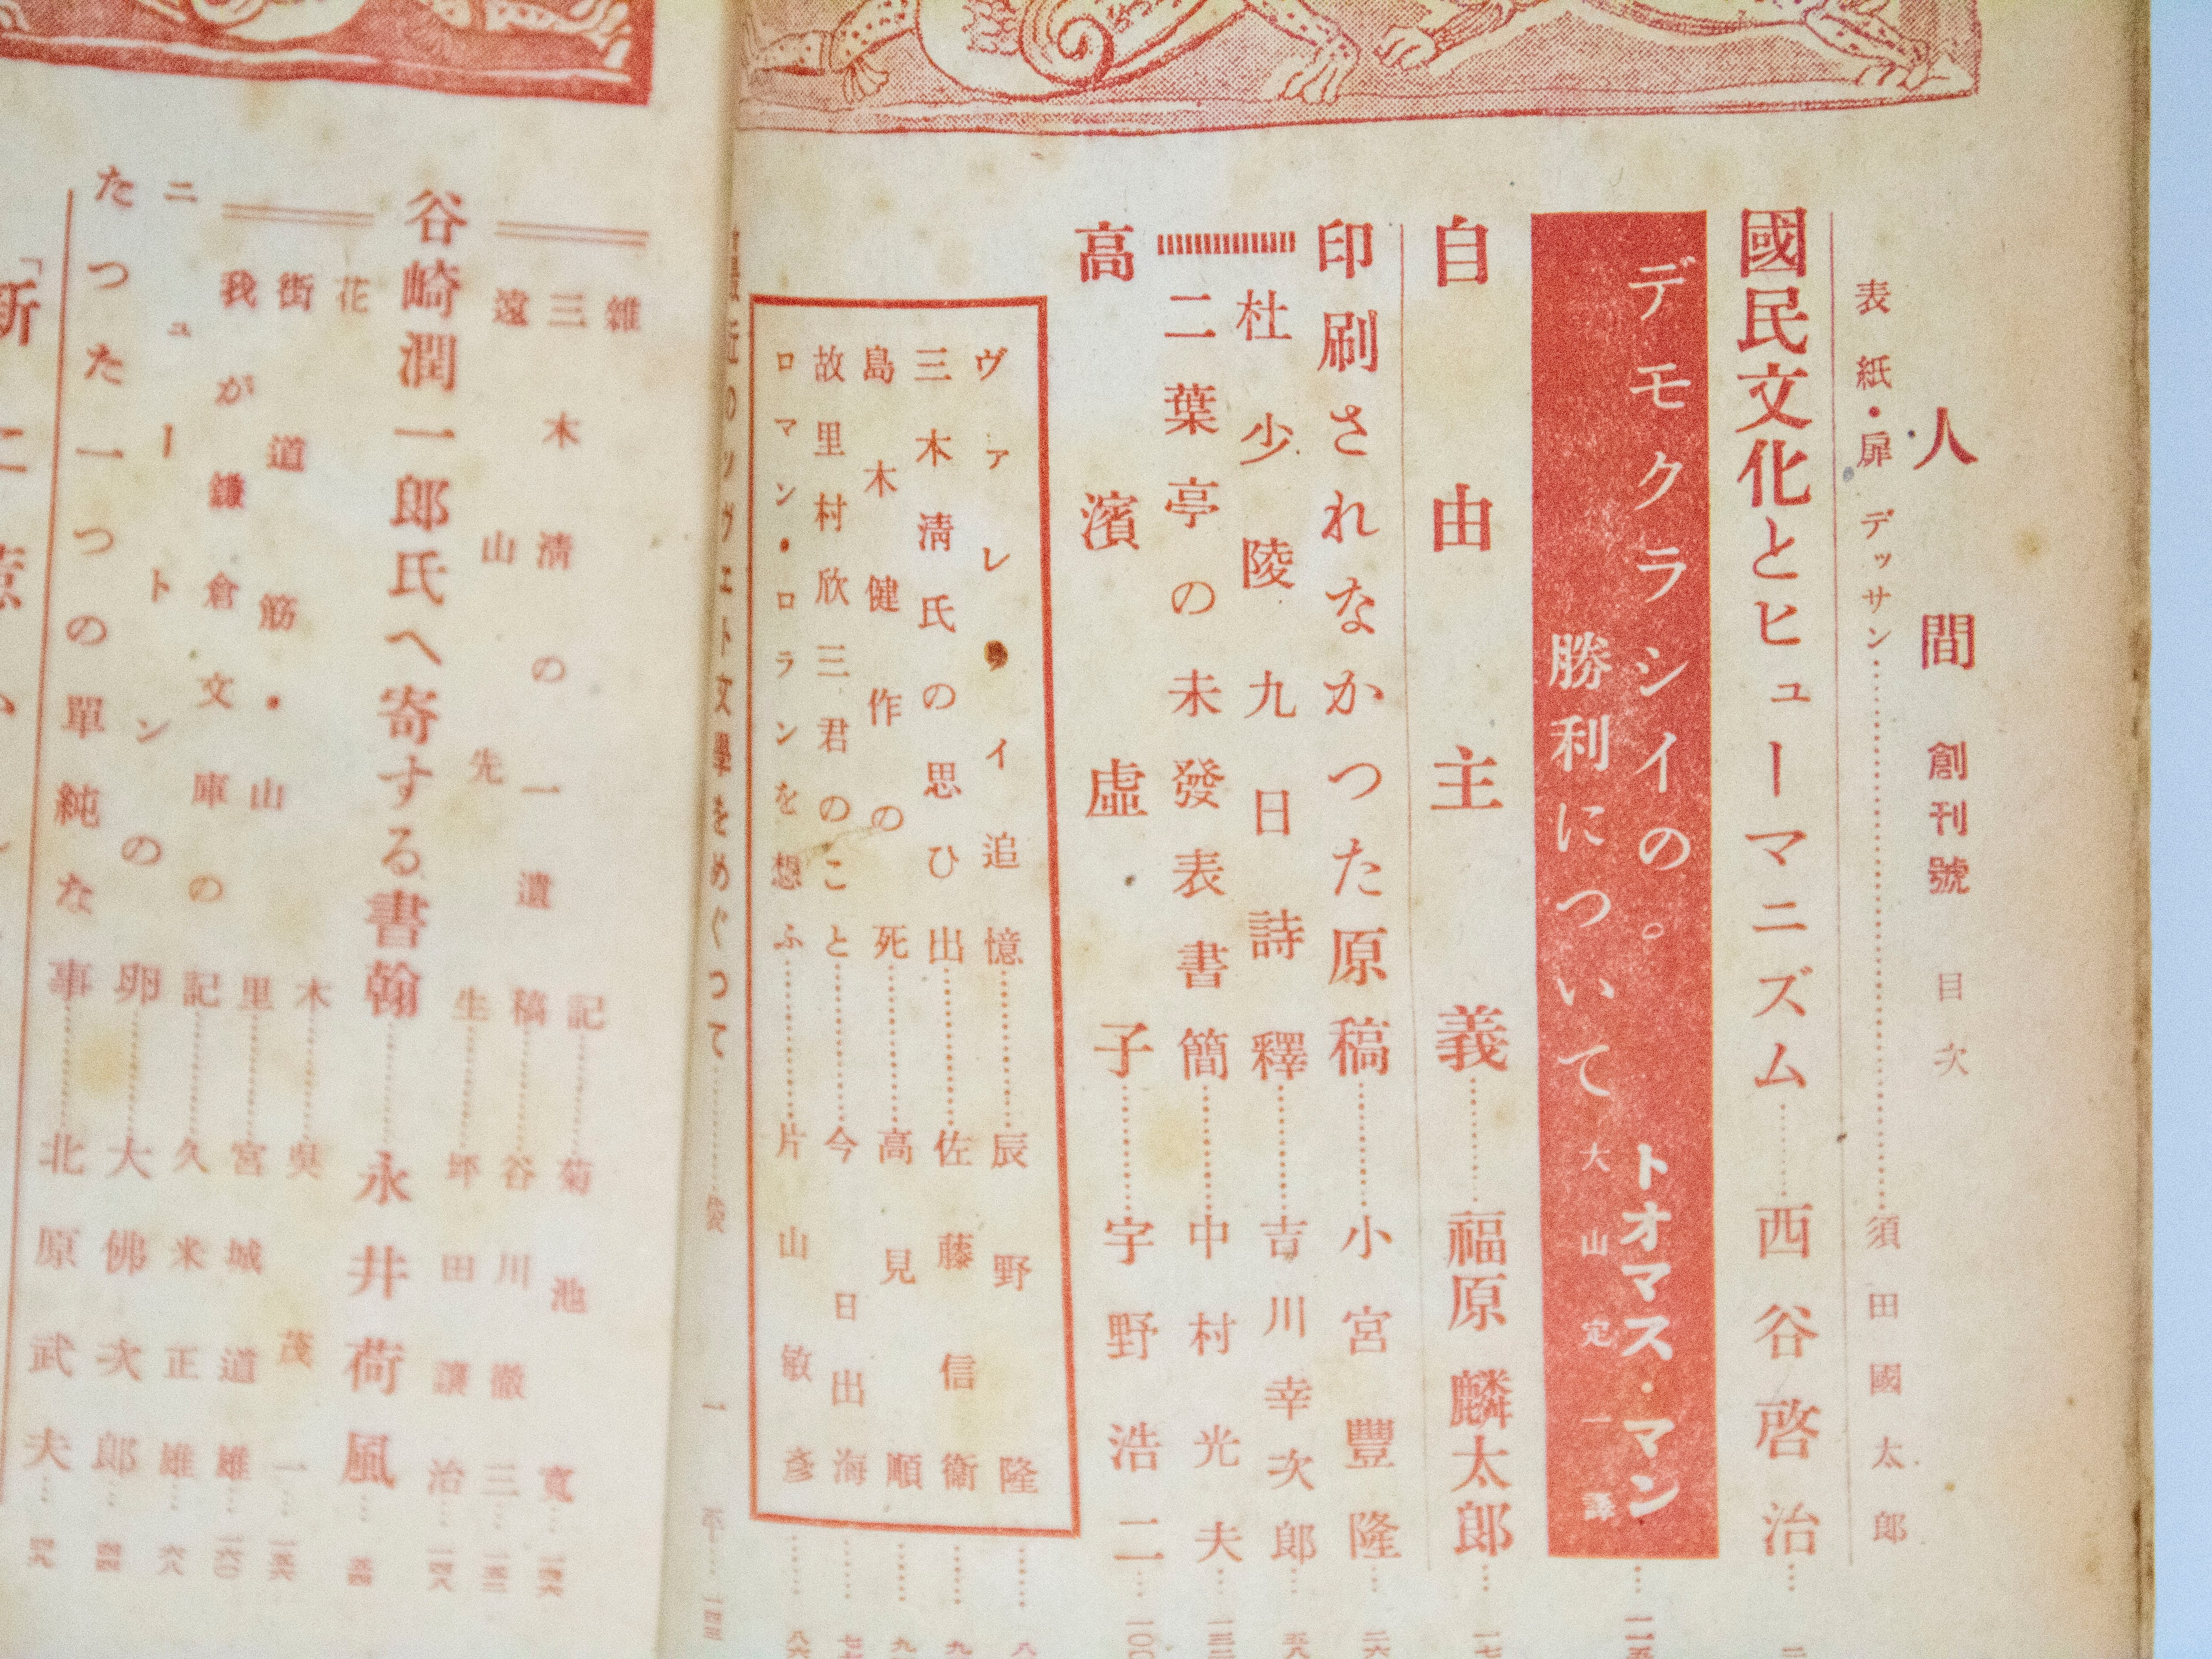 人間 創刊號 目次
表紙・扉 デッサン…………須田國太郎
國民文化とヒューマニズム……西谷啓治……二
デモクラシイの。 トオマス・マン
勝利について 大山定一譯
自由主義……福原麟太郎……一七
印刷されなかつた原稿……小宮豐隆……二六
杜少陵九日詩釋……吉川幸次郎……五八
二葉亭の未發表書簡……中村光夫
高濱虛子……宇野浩二……一〇〇
ヴァレリイ追憶……辰野隆……八
三木淸氏の思ひ出……佐藤信衞……九
島木健作の死……高見順……九
故里村欣三君のこと……今日出海
ロマン・ロランを想ふ……片山敏彥……八六
最近のソヴェト文學をめぐつて……袋一平……
雜記……菊池寬……
三木淸の一遺稿……谷川徹三……
遠山先生……坪田讓治……
谷崎潤一郎氏へ寄する書翰……永井荷風……
花木……吳茂一……
街道筋・山里……宮城道雄……
我が鎌倉文庫の記……久米正雄……六
ニュートンの卵……大佛次郎……
たつた一つの單純な事……北原武夫……
「新に